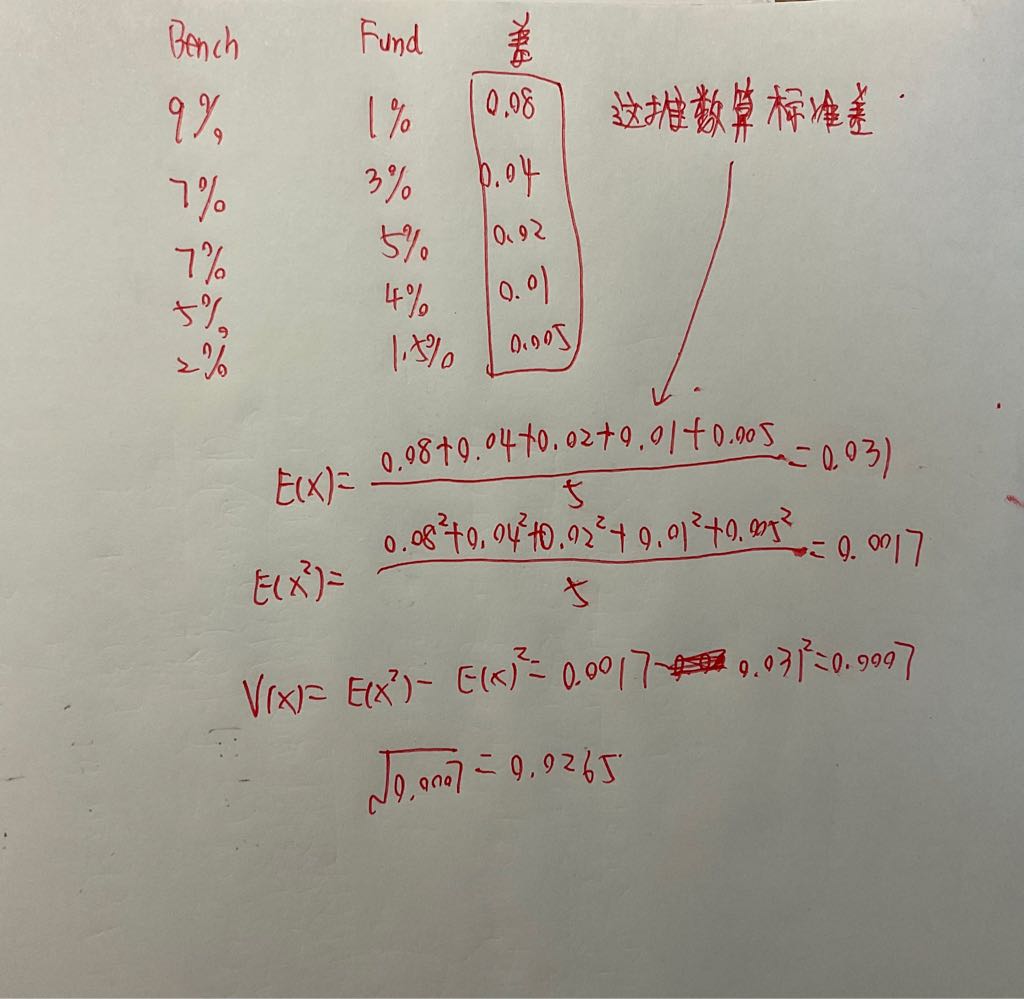 Bench Fund 差
9% 1% 0.08 这堆数算标准差
7% 3% 0.04
7% 5% 0.02
5% 4% 0.01
2% 1.5% 0.005
E(X)= (0.08+0.04+0.02+0.01+0.005)/5 = 0.031
E(X²)= (0.08²+0.04²+0.02²+0.01²+0.005²)/5 = 0.0017
V(X)= E(X²)- E(X)²= 0.0017- 0.031²=0.0007
√0.0007 = 0.0265